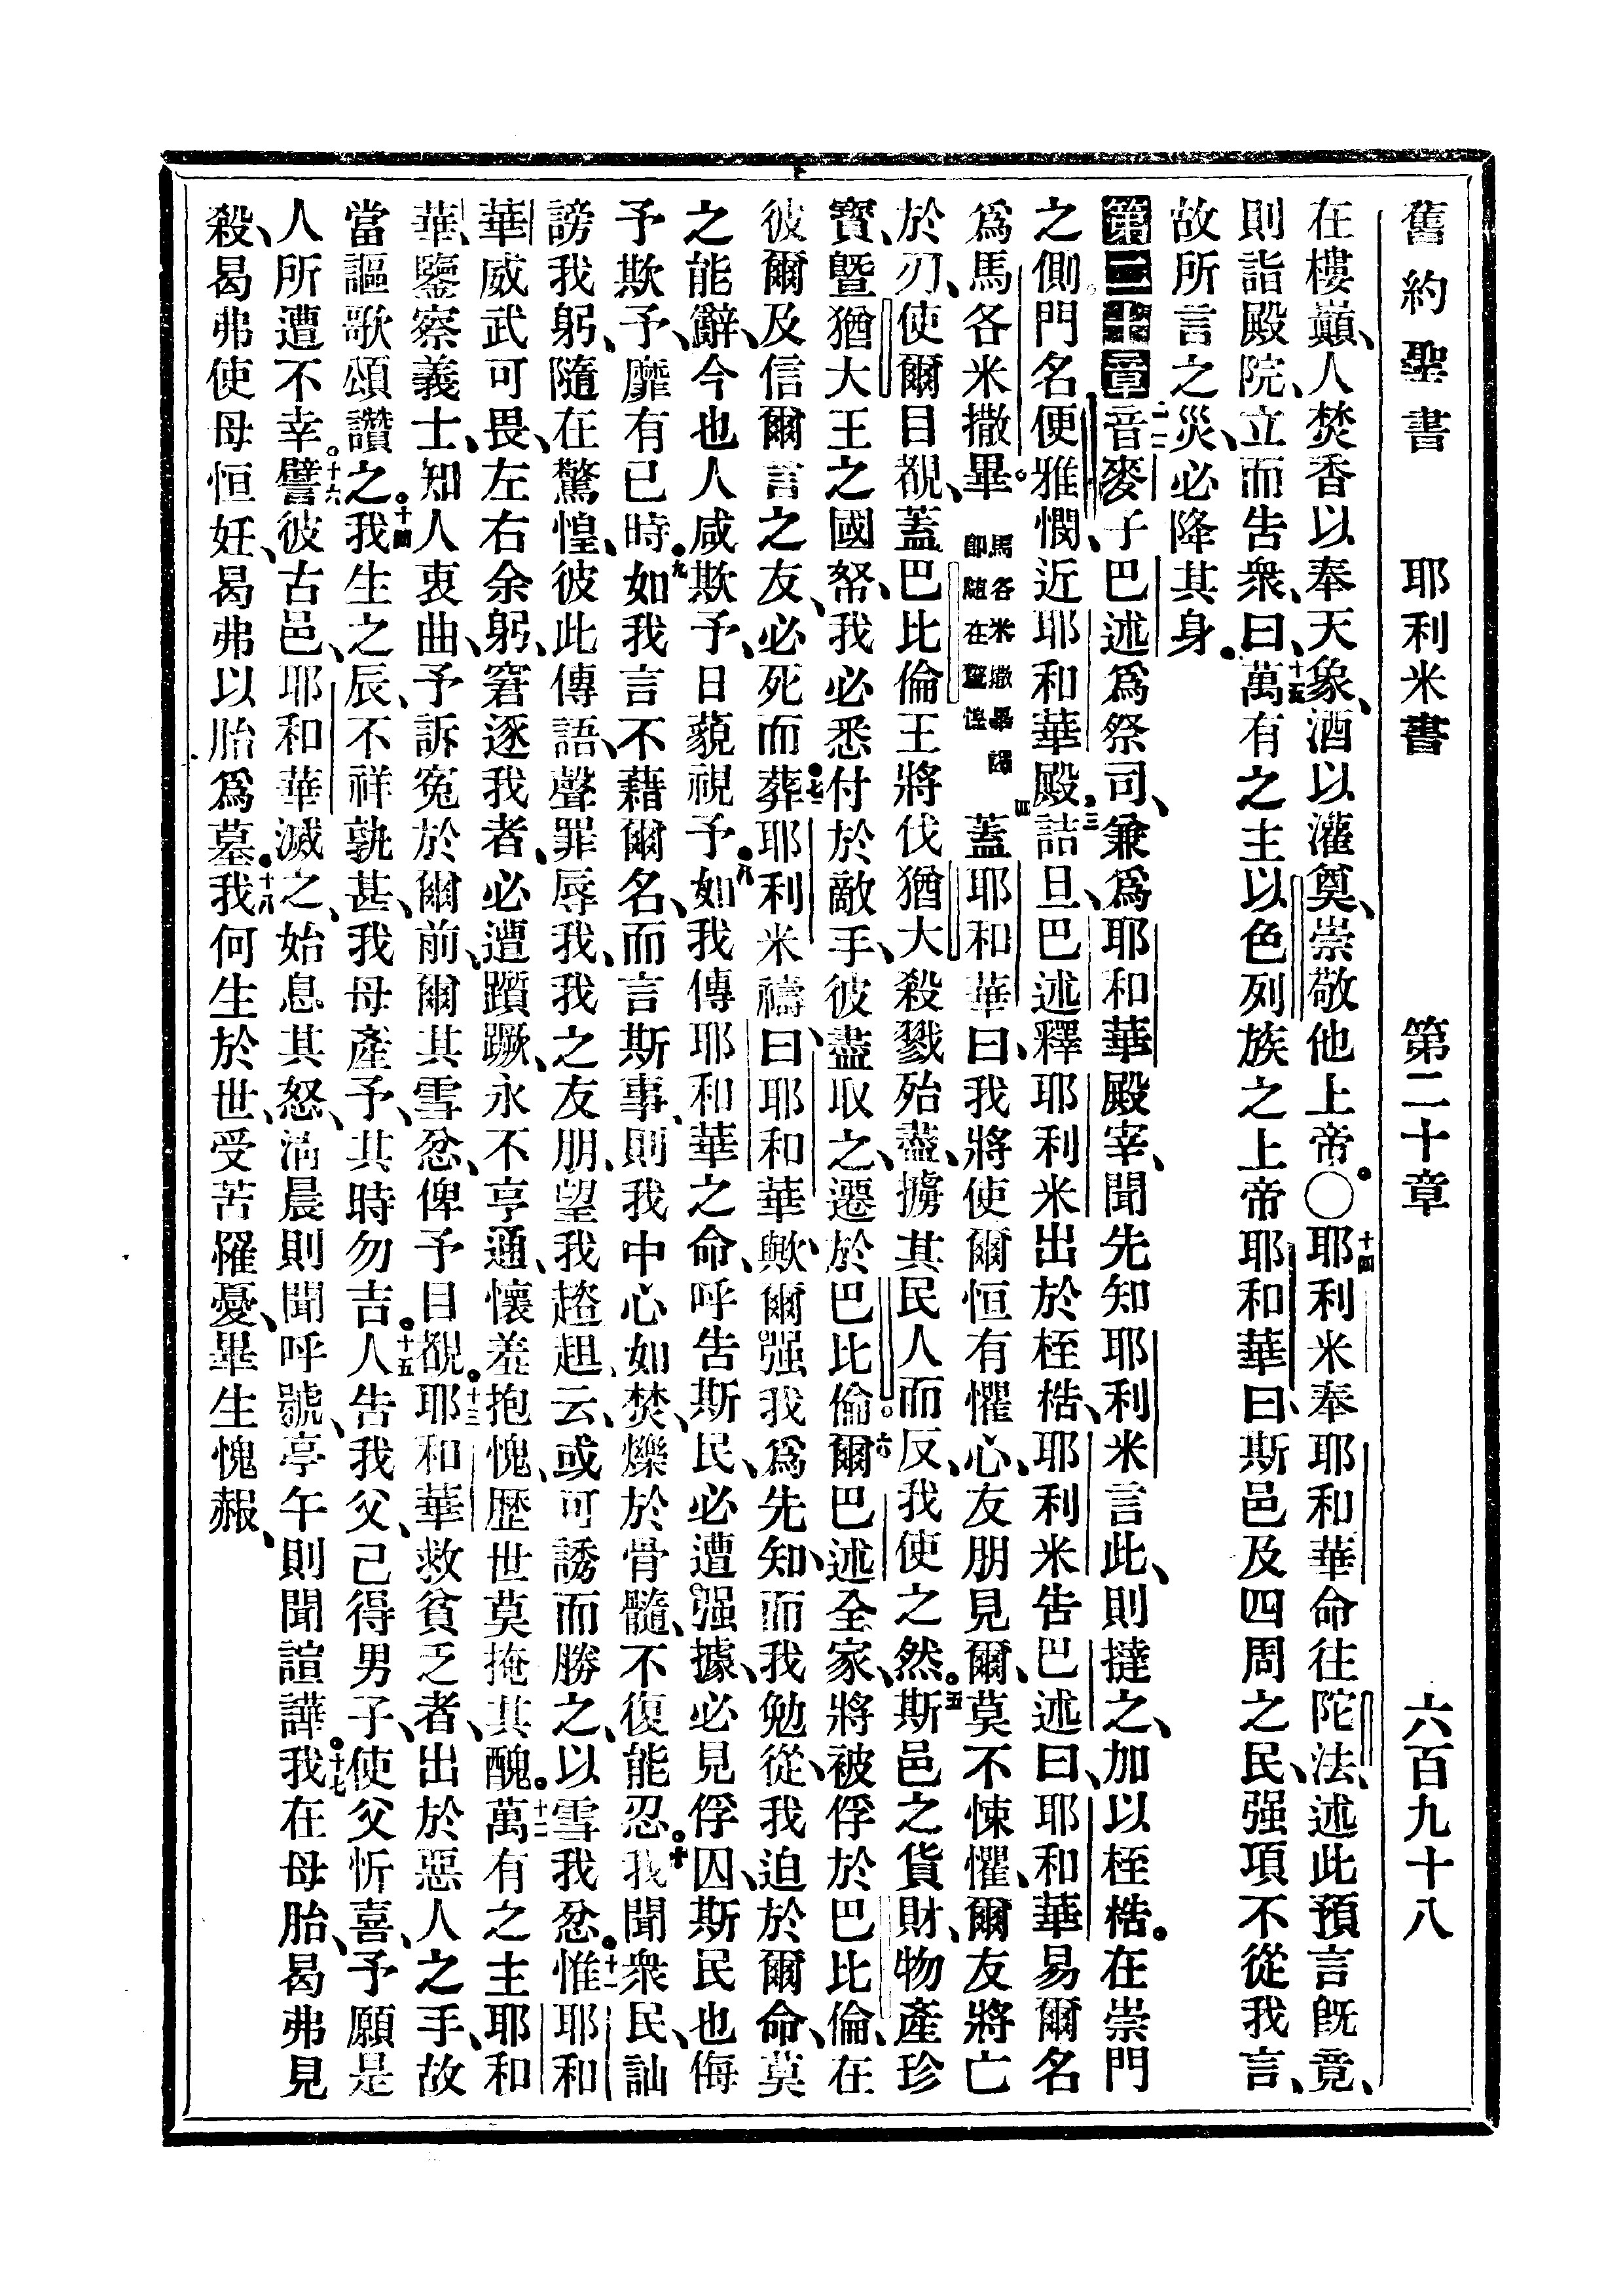 舊約聖書　耶利米書　第二十章　六百九十八
在樓巔、人焚香以奉天象、酒以灌奠、崇敬他上帝。〇十四耶利米奉耶和華命往陀法、述此預言既竟、
則詣殿院、立而告衆、曰、十五萬有之主以色列族之上帝耶和華曰、斯邑及四周之民、强項不從我言、
故所言之災、必降其身。
第二十章一二音麥子巴述爲祭司、兼爲耶和華殿宰、聞先知耶利米言此、則撻之、加以桎梏。在崇門
之側。門名便雅憫、近耶和華殿、三詰旦、巴述釋耶利米出於桎梏、耶利米告巴述曰、耶和華易爾名
爲馬各米撒畢。馬各米撒畢譯卽隨在驚惶四蓋耶和華曰、我將使爾恒有懼心、友朋見爾、莫不悚懼、爾友將亡
於刃、使爾目覩、蓋巴比倫王將伐猶大、殺戮殆盡、擄其民人而反、我使之然。五斯邑之貨財、物產珍
寶、曁猶大王之國帑、我必悉付於敵手、彼盡取之、遷於巴比倫。六爾巴述全家、將被俘於巴比倫、在
彼爾及信爾言之友、必死而葬。七耶利米禱曰、耶和華歟、爾强我爲先知、而我勉從、我迫於爾命、莫
之能辭、今也人咸欺予、日藐視予。八如我傳耶和華之命、呼告斯民、必遭强據、必見俘囚、斯民也侮
予欺予、靡有已時。九如我言不藉爾名、而言斯事、則我中心如焚、爍於骨髓、不復能忍。十我聞衆民、訕
謗我躬、隨在驚惶、彼此傳語、聲罪辱我、我之友朋、望我趑趄、云、或可誘而勝之、以雪我忿。十一惟耶和
華威武可畏、左右余躬、窘逐我者、必遭躓蹶、永不亨通、懷羞抱愧、歷世莫掩其醜。十二萬有之主耶和
華、鑒察義士、知人衷曲、予訴寃於爾前、爾其雪忿、俾予目覩。十三耶和華救貧乏者、出於惡人之手、故
當謳歌頌讚之。十四我生之辰、不祥孰甚、我母產予、其時勿吉。十五人告我父、已得男子、使父忻喜、予願是
人所遭不幸。十六譬彼古邑、耶和華滅之、始息其怒、淸晨則聞呼號、亭午則聞諠譁。十七我在母胎、曷弗見
殺、曷弗使母恒妊、曷弗以胎爲墓。十八我何生於世、受苦罹憂、畢生愧赧、